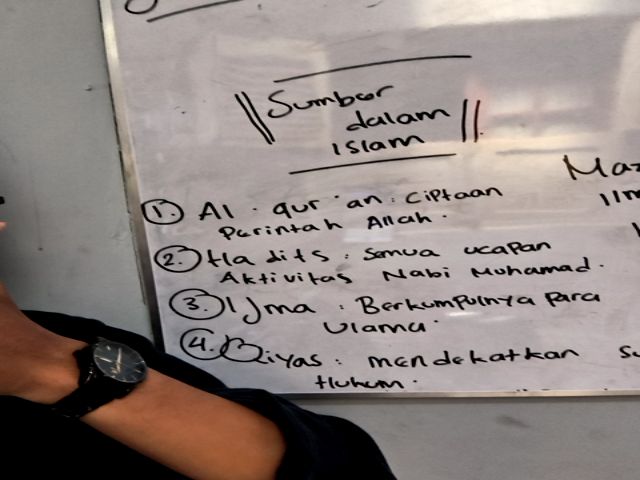 Sumber
dalam
Islam
1. Al-qur'an: Ciptaan
Perintah Allah.
2. Hadits: Semua ucapan
Aktivitas Nabi Muhamad.
3. IJma: Berkumpulnya para
Ulama.
4. Qiyas: mendekatkan
Hukum.